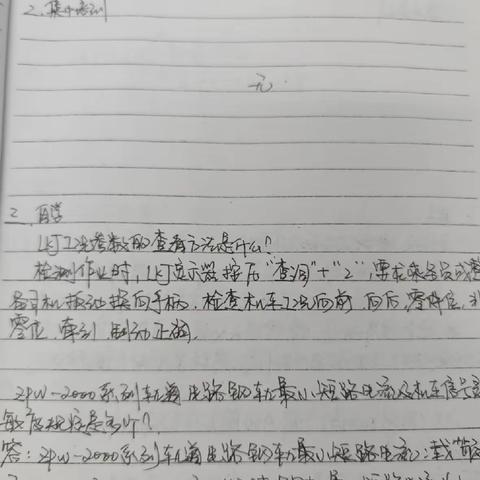 2.集中培训
无.
2.自学
LKJ工况参数的查看方法是什么？
检测作业时，LKJ显示器按压"查询"+"2"，要求乘务员或
司机 换向手柄，检查机车工况向前 向后，零
零位 牵引 制动正确.
ZPW-2000系列轨道电路钢轨最小短路电流及机车信号灵
敏度规定是多少？
答：ZPW-2000系列轨道电路钢轨最小短路电流：载频